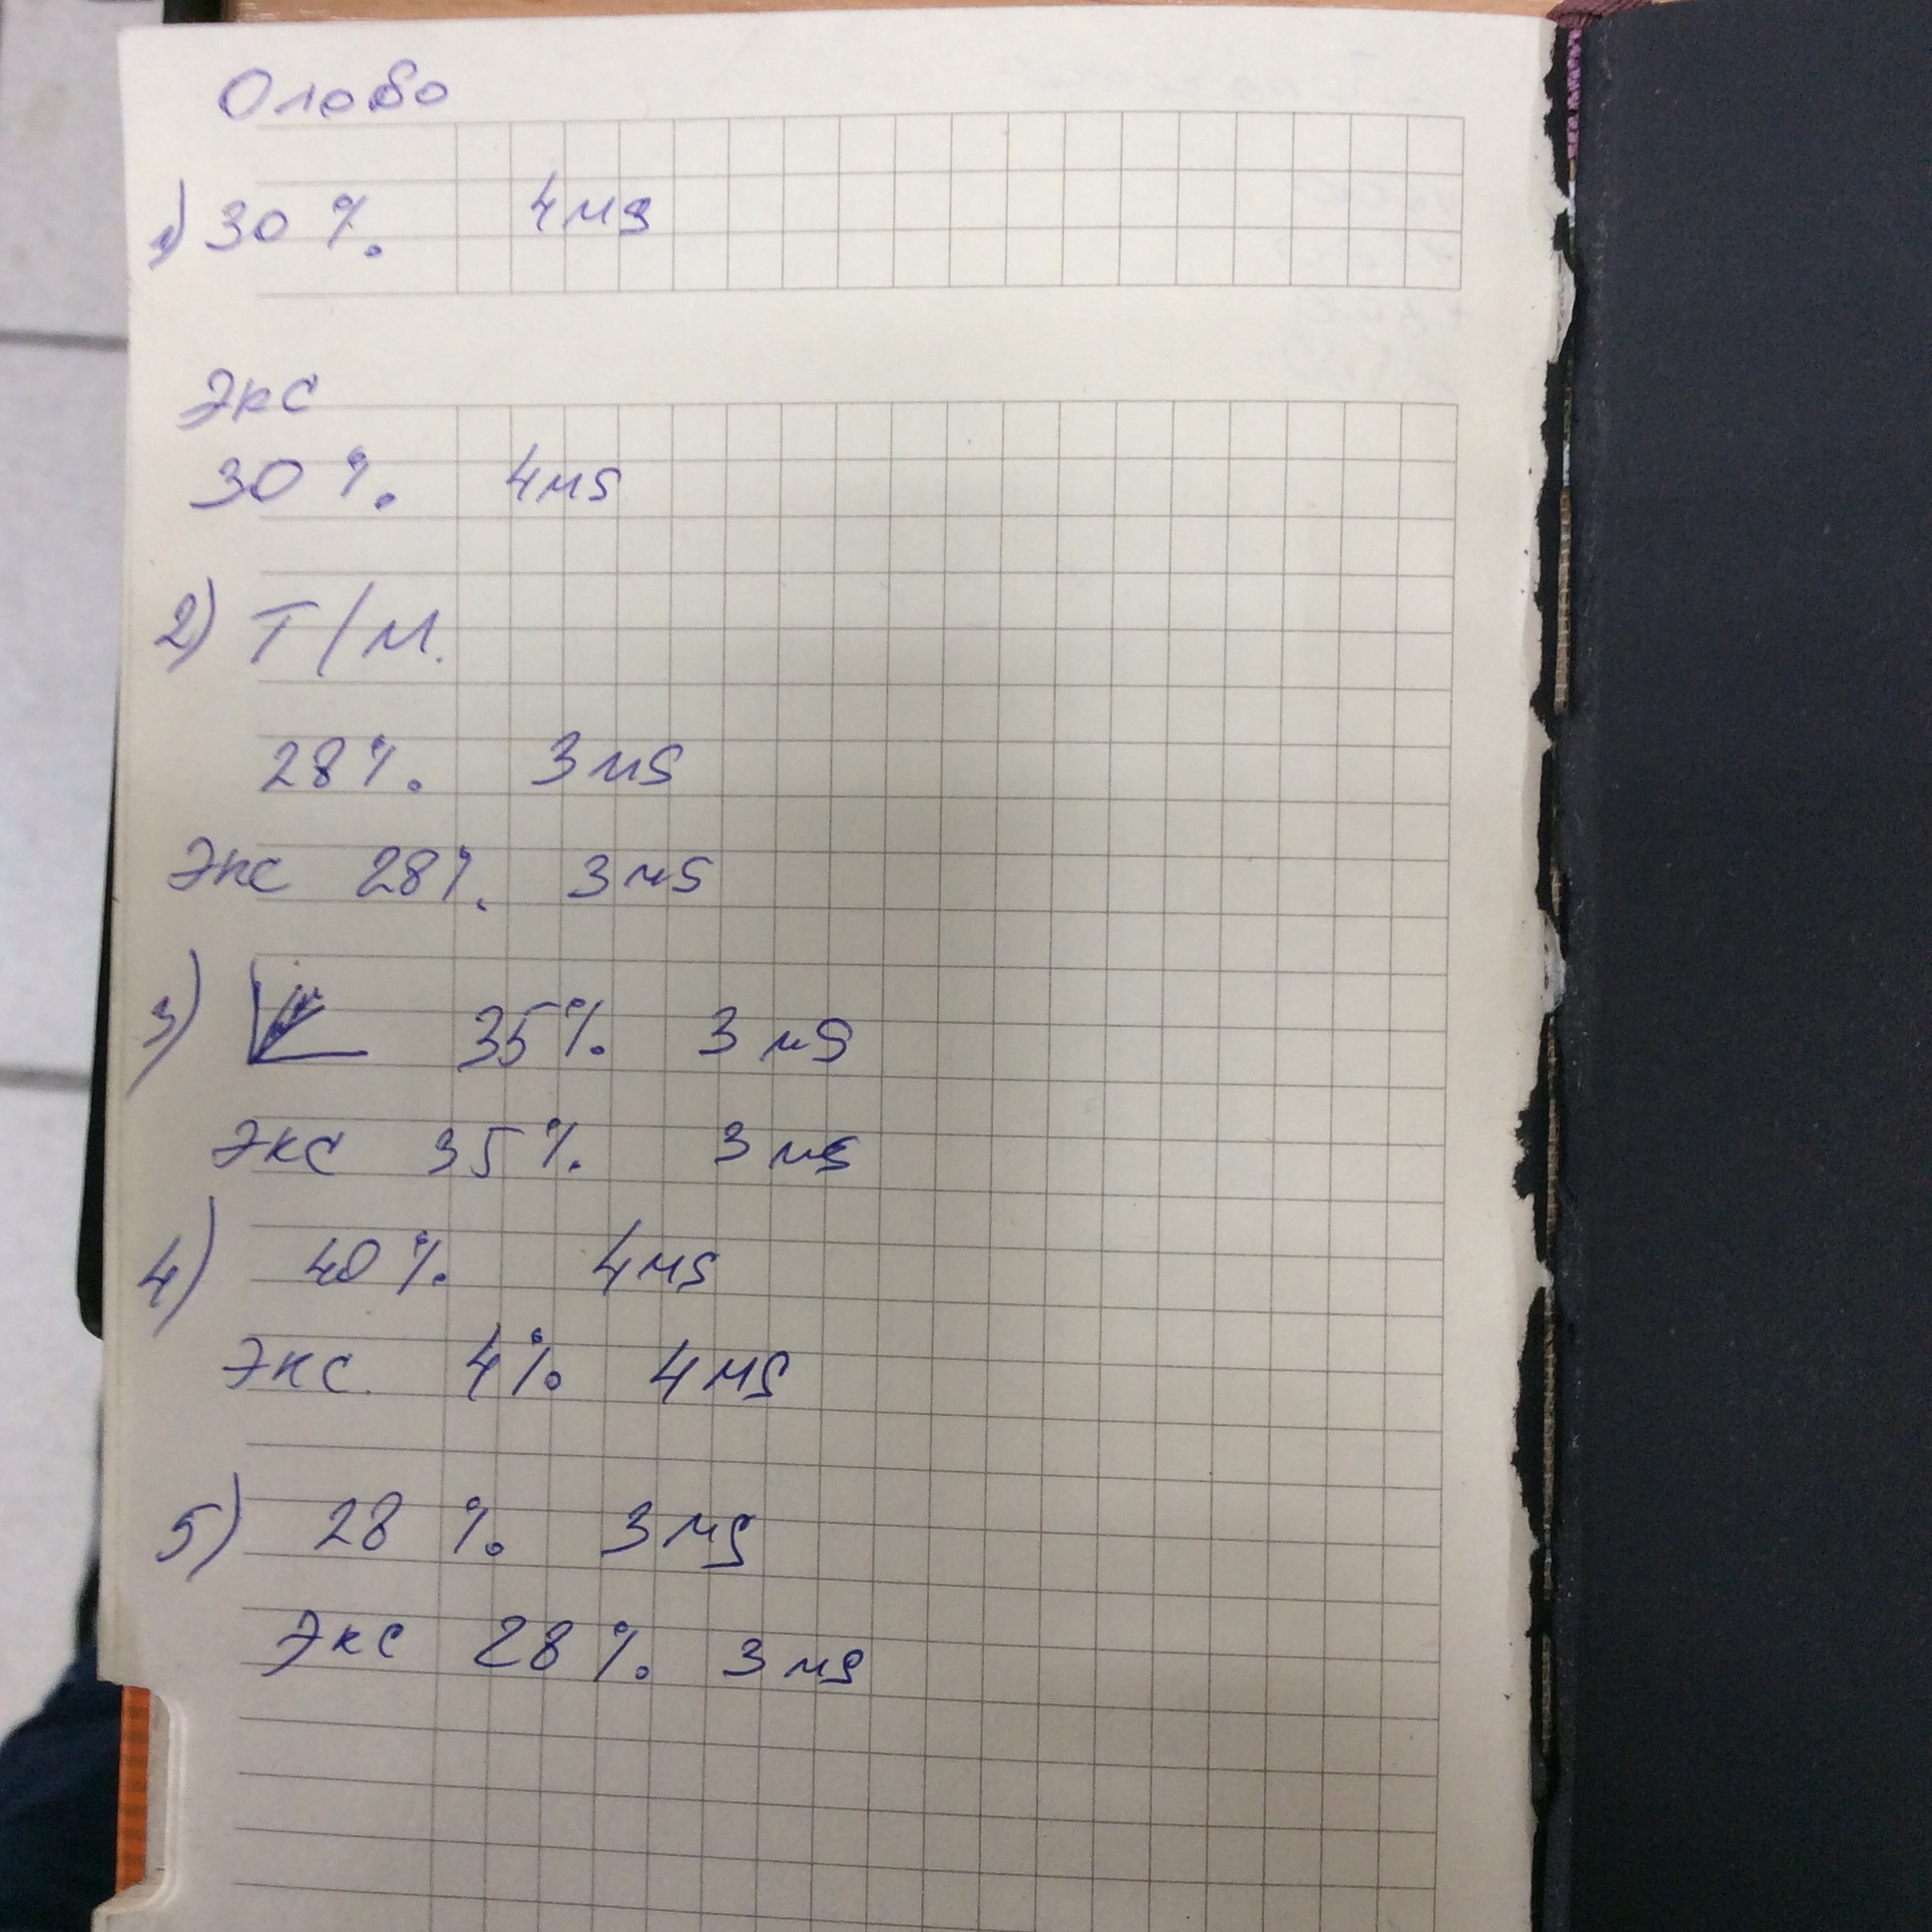 Олово
1) 30 % 4 мs
Экс
30 % 4 мs
2) Т/М.
28 % 3 мs
Экс 28 % 3 мs
3) 35 % 3 мs
Экс 35 % 3 мs
4) 40 % 4 мs
Экс. 4 % 4 мs
5) 28 % 3 мs
Экс 28 % 3 мs